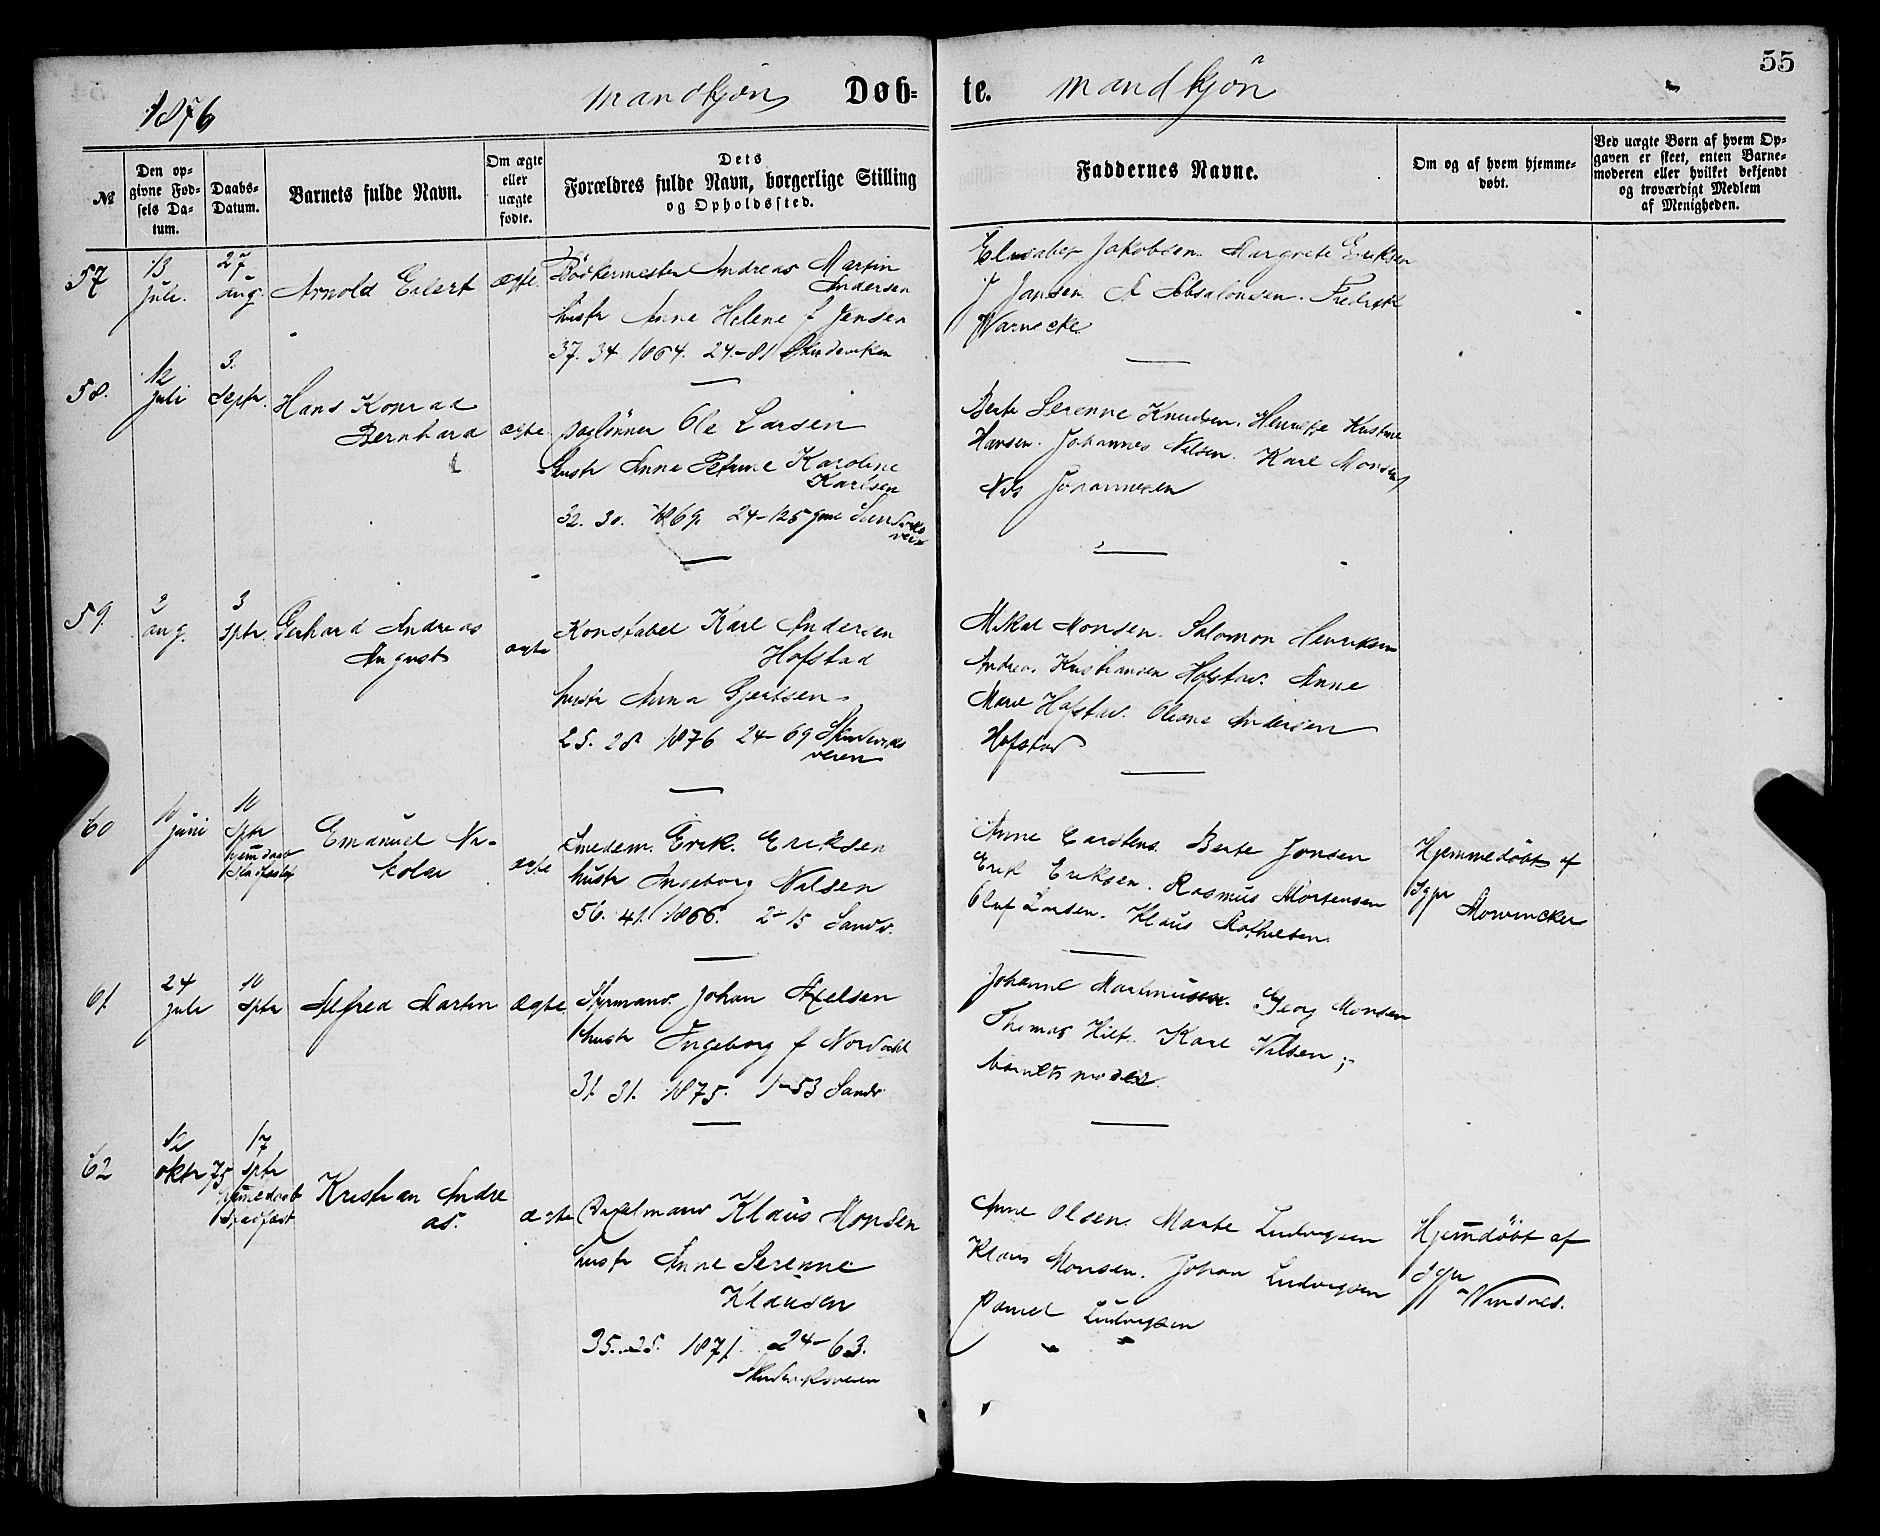 55
1876
Mandkjøn Døb-
te. Mandkjøn
№
Den op-
givne Fød-
sels Da-
tum.
Daabs-
Datum.
Barnets fulde Navn.
Om ægte
eller
uægte
fødte.
Dets
Forældres fulde Navn, borgerlige Stilling
og Opholdssted.
Faddernes Navne.
Om og af hvem hjemme-
døbt.
Ved uægte Børn af hvem Op-
gaven er skeet, enten Barne-
moderen eller hvilket bekjendt
og troværdigt Medlem
af Menigheden.
57
13
juli.
27
aug.
Arnold Eilert
ægte.
Bødkermester Andreas Martin
Andersen
hustr Anne Helene f Jensen
37. 34 1864. 24-81
Jakobsen. Margrete Eriksen
J Jansen A Absalonsen. Fredrik
Warnecke
58.
12
juli
3.
septr.
Hans Konrad
Bernhard
ægte
Daglønner Ole Larsen
Hustr Anne Petrine Karoline
Karlsen
32. 30. 1869. 24-125
Berte Serenne Knudsen. Henrikke
Hansen. Johannes Nilsen. Karl Monsen
Nils Johannesen
59.
2
aug.
3
sptr.
Gerhard Andreas
August
ægte
Konstabel Karl Andersen
Hofstad
hustr Anna Gjertsen
25. 28 1876 24-69 Skudeviks
veien
Mikal Monsen. Salomon Henriksen
Andreas Kristiansen Hofstad. Anne
Marie Hofstad. Oleane Andersen
Hofstad
60
10
juni
10
sptr
hjemdaab
stadfæstet
Emanuel Ni-
kolai
ægte
Smedem. Erik Eriksen
hustr Ingeborg Nilsen
56. 41. 1866. 2-15 Sandv.
Anne Carstens. Berte Jonsen
Erik Eriksen. Rasmus Mortensen
Oluf Larsen. Klaus Mathiesen.
Hjemmedøbt af
Sgpr Mowinckel
61.
24
juli
10
sptr
Alfred Martin
ægte
Styrmand Johan Axelsen
hustr Ingeborg f
31. 31. 1875. 1-53 Sandv
Johanne Martinussen. Georg Monsen
Thomas Karl Nilsen;
barnets moder.
62
12
oktr 75
17
sptr
hjemmedaab
stadfæst
Kristian Andre
as.
ægte
Klaus Monsen
hustr Anne Serenne
Klausen
35. 25. 1871. 24-63.
Skudeviksveien
Anne Olsen. Marte Ludvigsen
Klaus Monsen. Johan Ludvigsen
Daniel Ludvigsen
Hjemdøbt af
Sgpr